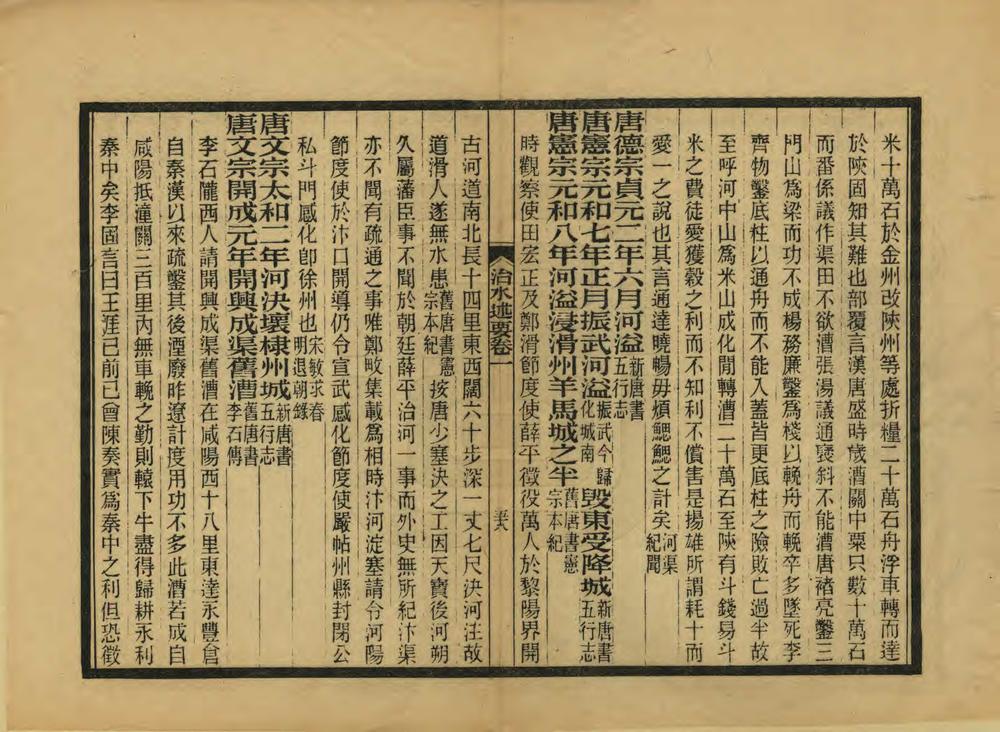 米十萬石於金州改陝州等處折糧二十萬石舟浮車轉而達
於陝固知其難也部覆言漢唐盛時歲漕關中粟只數十萬石
而番係議作渠田不欲漕張湯議通襃斜不能漕唐褚亮鑿三
門山爲梁而功不成楊務廉鑿爲棧以輓舟而輓卒多墜死李
齊物鑿底柱以通舟而不能入蓋皆更底柱之險敗亡過半故
至呼河中山爲米山成化閒轉漕二十萬石至陝有斗錢易斗
米之費徒愛獲穀之利而不知利不償害是揚雄所謂耗十而
愛一之說也其言通達曉暢毋煩鰓鰓之計矣河渠紀聞
唐德宗貞元二年六月河溢新唐書五行志
唐憲宗元和七年正月振武河溢振武今歸化城南毀東受降城新唐書五行志
唐憲宗元和八年河溢浸滑州羊馬城之半舊唐書憲宗本紀
時觀察使田宏正及鄭滑節度使薛平徵役萬人於黎陽界開
治水述要卷一
五六
古河道南北長十四里東西闊六十步深一丈七尺決河注故
道滑人遂無水患舊唐書憲宗本紀按唐少塞決之工因天寶後河朔
久屬藩臣事不聞於朝廷薛平治河一事而外史無所紀汴渠
亦不聞有疏通之事唯鄭畋集載爲相時汴河淀塞請令河陽
節度使於汴口開導仍令宣武感化節度使嚴帖州縣封閉公
私斗門感化卽徐州也宋敏求春明退朝錄
唐文宗太和二年河決壞棣州城新唐書五行志
唐文宗開成元年開興成渠舊漕舊唐書李石傳
李石隴西人請開興成渠舊漕在咸陽西十八里東達永豐倉
自秦漢以來疏鑿其後湮廢昨遼計度用功不多此漕若成自
咸陽抵潼關三百里內無車輓之勤則轅下牛盡得歸耕永利
秦中矣李固言曰王涯已前已曾陳奏實爲秦中之利但恐徵